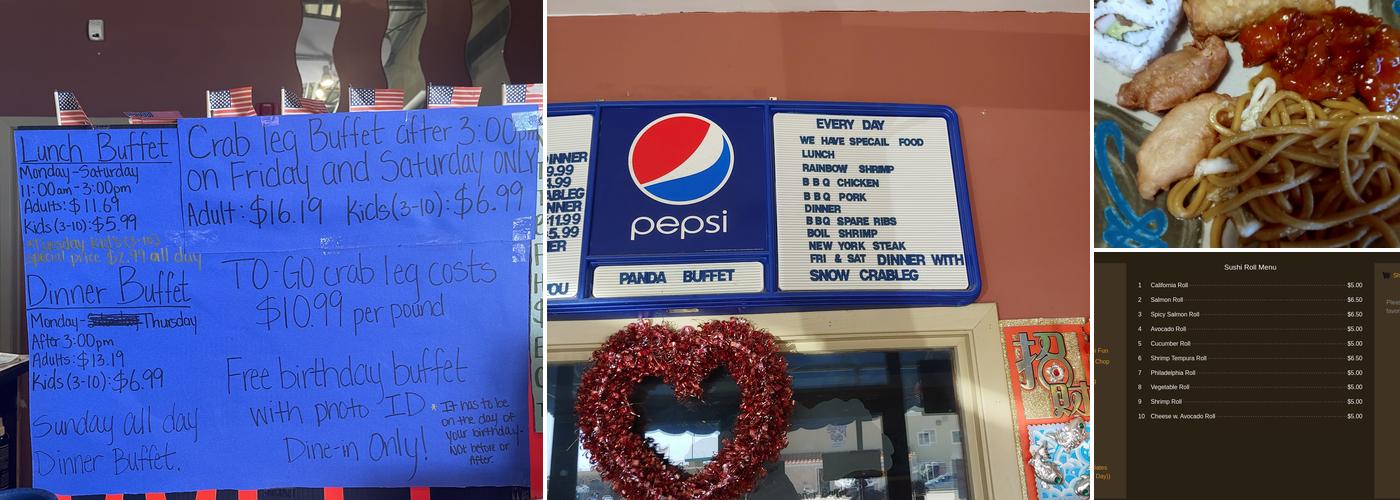 Lunch Buffet
Monday-Saturday
11:00am-3:00pm
Adults: $11.69
Kids(3-10): $5.99
*Tuesday kid's (3-10)
special price $2.99 all day
Dinner Buffet
Monday- Thursday
After 3:00pm
Adults: $13.19
Kids (3-10): $6.99
Sunday all day
Dinner Buffet.
Crab leg Buffet after 3:00pm
on Friday and Saturday ONLY
Adult: $16.19 Kids(3-10): $6.99
TO-GO crab leg costs
$10.99 per pound
Free birthday buffet
with photo ID
Dine-in Only!
* It has to be
on the day of
your birthday.
Not before or
After.
INNER
9.99
4.99
ABLEG
NNER
1199
5.99
ER
OU
pepsi
PANDA BUFFET
EVERY DAY
WE HAVE SPECAIL FOOD
LUNCH
RAINBOW SHRIMP
B B Q CHICKEN
B B Q PORK
DINNER
B B Q SPARE RIBS
BOIL SHRIMP
NEW YORK STEAK
FRI & SAT DINNER WITH
SNOW CRABLEG
招
財
Sushi Roll Menu
1 California Roll $5.00
2 Salmon Roll $6.50
3 Spicy Salmon Roll $6.50
4 Avocado Roll $5.00
5 Cucumber Roll $5.00
6 Shrimp Tempura Roll $6.50
7 Philadelphia Roll $5.00
8 Vegetable Roll $5.00
9 Shrimp Roll $5.00
10 Cheese w. Avocado Roll $5.00
Fun
Chop
Day))